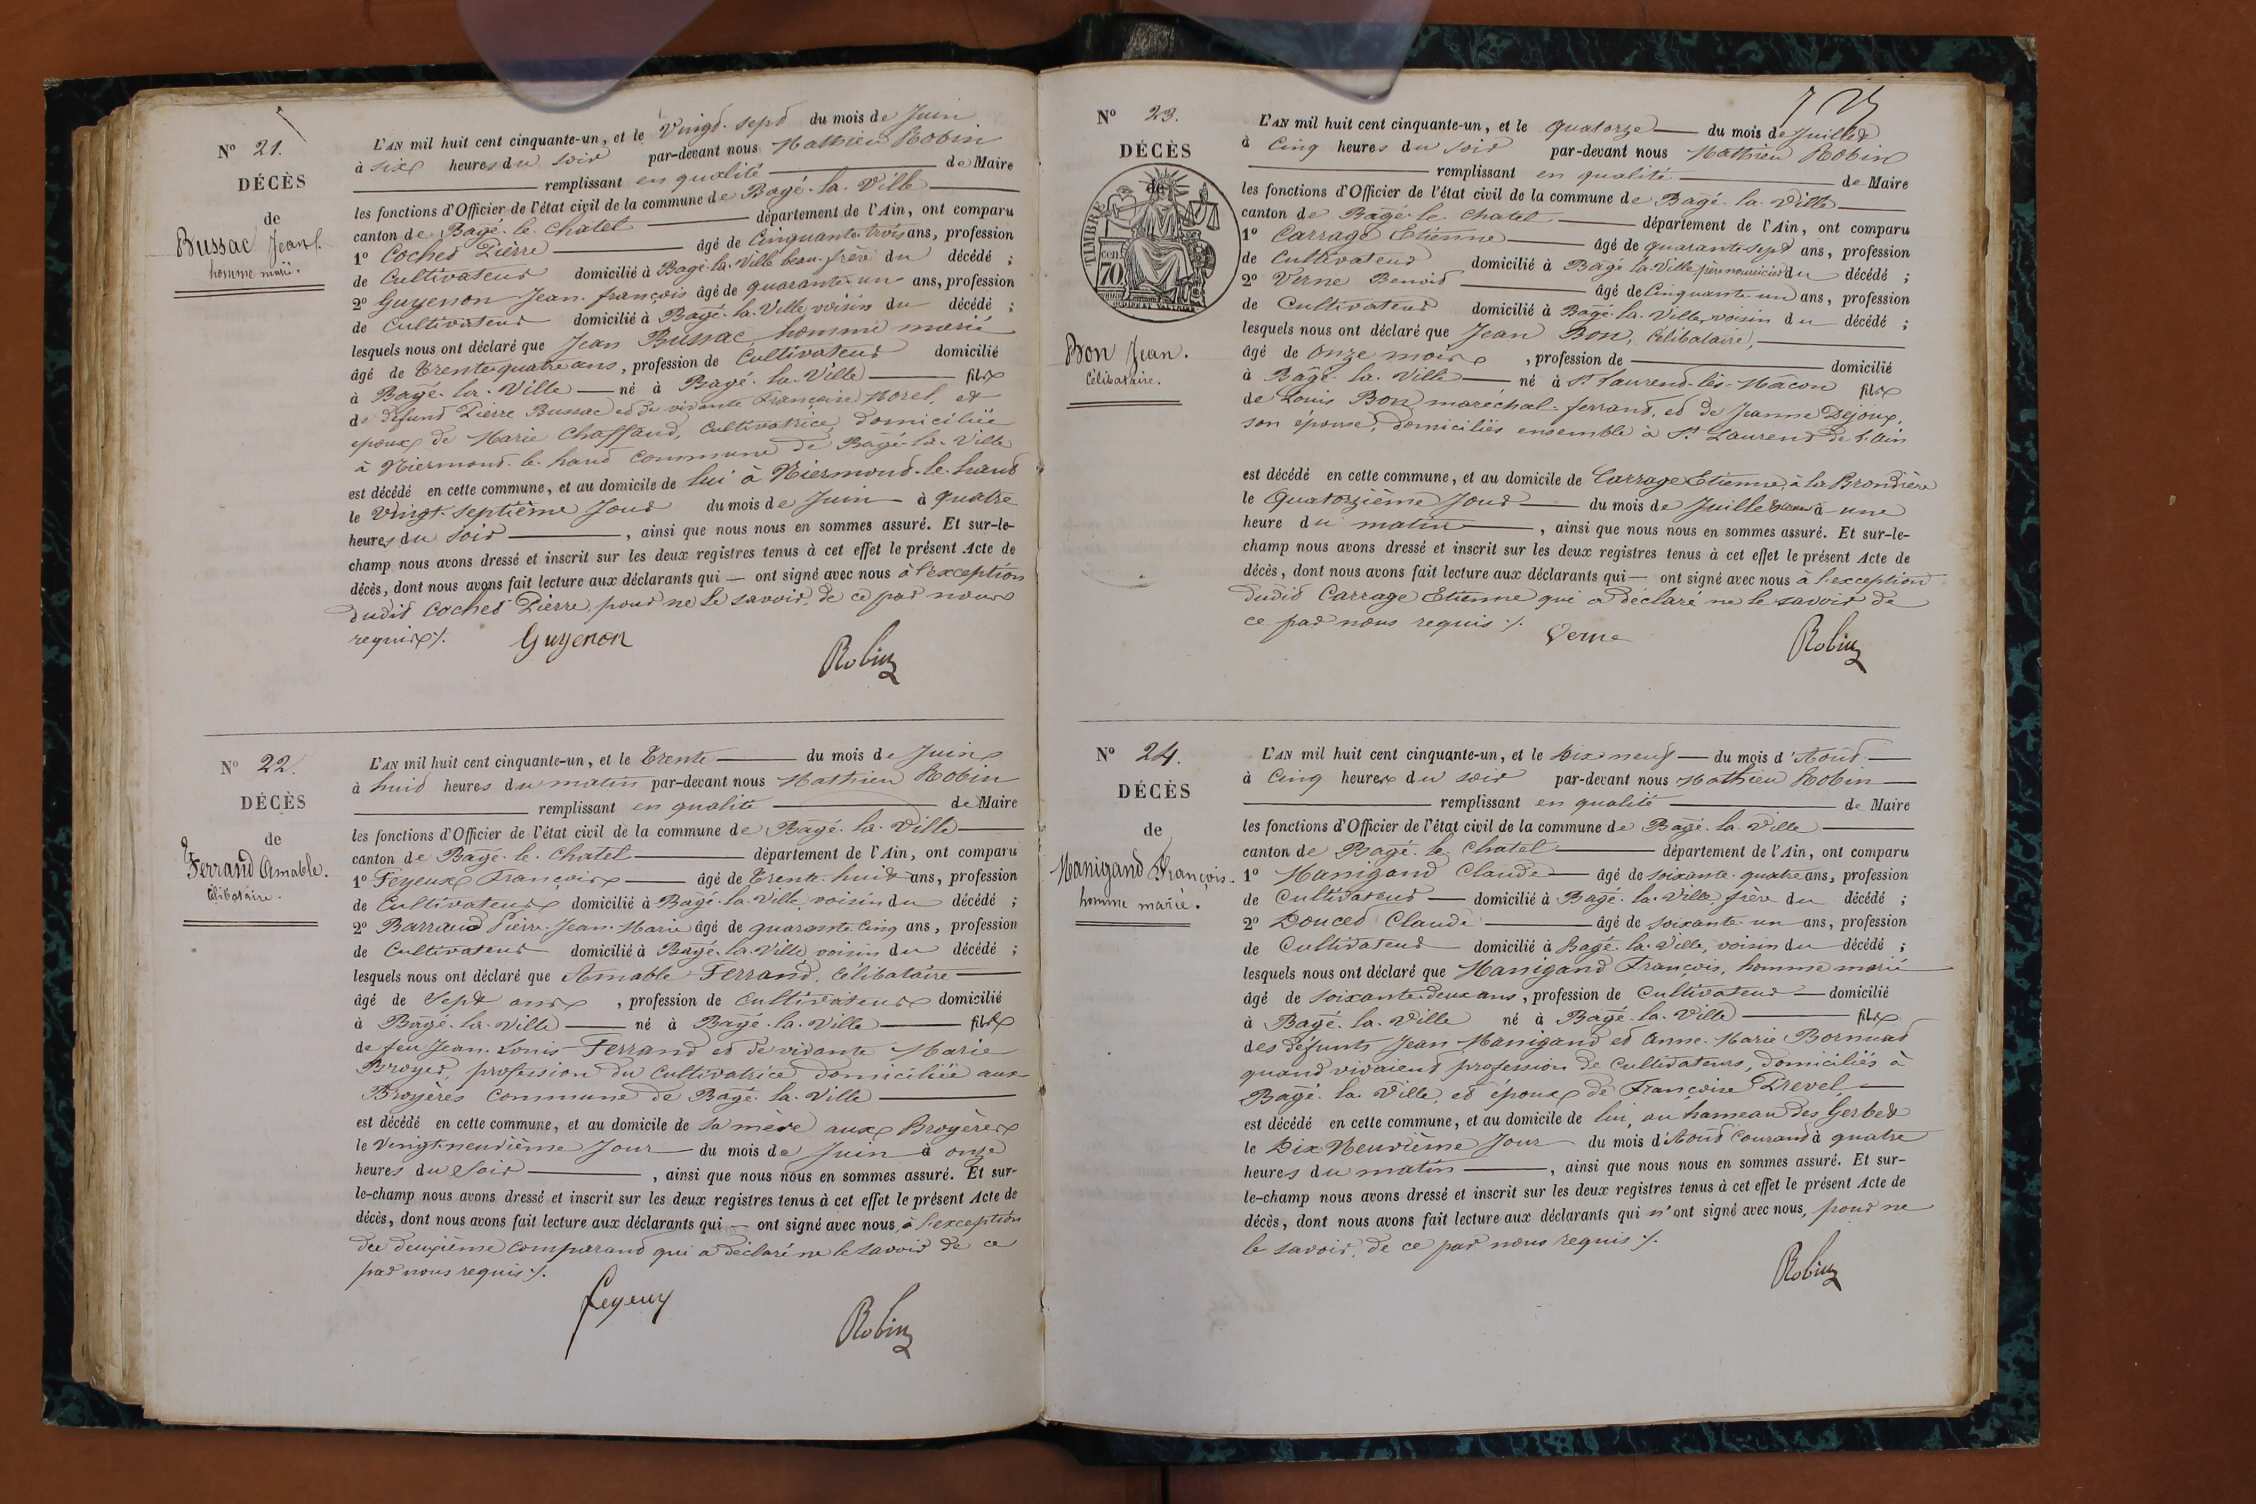 N° 21.
DÉCÈS
de
Bussac Jean
homme marié.
L'AN mil huit cent cinquante-un, et le Vingt-sept du mois de Juin
à six heures du soir par-devant nous Mathieu Robin
remplissant en qualité de Maire
les fonctions d'Officier de l'état civil de la commune de Bagé-la-Ville
canton de Bagé-le-Chatel département de l'Ain, ont comparu
1° Cochet Pierre âgé de Cinquante trois ans, profession
de Cultivateur domicilié à Bagé-la-Ville beau-frère du décédé ;
2° Guyenon Jean-françois âgé de quarante-un ans, profession
de Cultivateur domicilié à Bagé-la-Ville voisin du décédé ;
lesquels nous ont déclaré que Jean Bussac, homme marié
âgé de trente quatre ans, profession de Cultivateur domicilié
à Bagé-la-Ville né à Bagé-la-Ville fils
de défunt Pierre Bussac et de vivante Françoise Morel, et
époux de Marie Chaffaud, Cultivatrice, domiciliée
à Niermont-le-haut commune de Bagé-la-Ville
est décédé en cette commune, et au domicile de lui à Niermont-le-haut
le Vingt-septième Jour du mois de Juin à quatre
heures du soir , ainsi que nous nous en sommes assuré. Et sur-le-
champ nous avons dressé et inscrit sur les deux registres tenus à cet effet le présent Acte de
décès, dont nous avons fait lecture aux déclarants qui — ont signé avec nous à l'exception
dudit Cochet Pierre, pour ne le savoir, de ce par nous
requis ./.
Guyenon
Robin
N° 22.
DÉCÈS
de
Ferrand Amable.
Célibataire.
L'AN mil huit cent cinquante-un, et le Trente du mois de Juin
à huit heures du matin par-devant nous Mathieu Robin
remplissant en qualité de Maire
les fonctions d'Officier de l'état civil de la commune de Bagé-la-Ville
canton de Bagé-le-Chatel département de l'Ain, ont comparu
1° Feyeux François âgé de Trente-huit ans, profession
de Cultivateur domicilié à Bagé-la-Ville, voisin du décédé ;
2° Barraud Pierre-Jean-Marie âgé de quarante Cinq ans, profession
de Cultivateur domicilié à Bagé-la-Ville, voisin du décédé ;
lesquels nous ont déclaré que Amable Ferrand, célibataire
âgé de Sept ans , profession de Cultivateur domicilié
à Bagé-la-Ville né à Bagé-la-Ville fils
de feu Jean-Louis Ferrand et de vivante Marie
Broyer, profession du Cultivatrice domiciliée aux
Broyères Commune de Bagé-la-Ville
est décédé en cette commune, et au domicile de sa mère aux Broyères
le Vingt-neuvième Jour du mois de Juin à onze
heures du Soir , ainsi que nous nous en sommes assuré. Et sur-
le-champ nous avons dressé et inscrit sur les deux registres tenus à cet effet le présent Acte de
décès, dont nous avons fait lecture aux déclarants qui — ont signé avec nous, à l'exception
du deuxième comparant qui a déclaré ne le savoir de ce
par nous requis ./.
feyeux
Robin
N° 23.
DÉCÈS
de
TIMBRE
70
Bon Jean.
Célibataire.
L'AN mil huit cent cinquante-un, et le quatorze du mois de Juillet
à Cinq heures du soir par-devant nous Mathieu Robin
remplissant en qualité de Maire
les fonctions d'Officier de l'état civil de la commune de Bagé-la-Ville
canton de Bagé-le-Chatel département de l'Ain, ont comparu
1° Carrage Etienne âgé de quarante-sept ans, profession
de Cultivateur domicilié à Bagé-la-Ville, père nourricier du décédé ;
2° Verne Benoit âgé de Cinquante-un ans, profession
de Cultivateur domicilié à Bagé-la-Ville, voisin du décédé ;
lesquels nous ont déclaré que Jean Bon, Célibataire,
âgé de Onze mois , profession de domicilié
à Bagé-la-Ville né à St Laurent-lès-Mâcon fils
de Louis Bon maréchal-ferrant, et de Jeanne Dejoux,
son épouse, domiciliés ensemble à St Laurent de l'Ain
est décédé en cette commune, et au domicile de Carrage Etienne, à la Brondière
le Quatorzième Jour du mois de Juillet à une
heure du matin , ainsi que nous nous en sommes assuré. Et sur-le-
champ nous avons dressé et inscrit sur les deux registres tenus à cet effet le présent Acte de
décès, dont nous avons fait lecture aux déclarants qui — ont signé avec nous à l'exception
dudit Carrage Etienne qui a déclaré ne le savoir de
ce par nous requis ./.
Verne
Robin
N° 24.
DÉCÈS
de
Manigand François.
homme marié.
L'AN mil huit cent cinquante-un, et le Dix-neuf du mois d'Août
à Cinq heures du soir par-devant nous Mathieu Robin
remplissant en qualité de Maire
les fonctions d'Officier de l'état civil de la commune de Bagé-la-Ville
canton de Bagé-le-Chatel département de l'Ain, ont comparu
1° Manigand Claude âgé de soixante-quatre ans, profession
de Cultivateur domicilié à Bagé-la-Ville, frère du décédé ;
2° Doucet Claude âgé de soixante-un ans, profession
de Cultivateur domicilié à Bagé-la-Ville, voisin du décédé ;
lesquels nous ont déclaré que Manigand François, homme marié
âgé de soixante-deux ans, profession de Cultivateur domicilié
à Bagé-la-Ville né à Bagé-la-Ville fils
des défunts Jean Manigand et Anne-Marie Bornuat
quand vivaient profession de Cultivateurs, domiciliés à
Bagé-la-Ville, et époux de Françoise Prevel,
est décédé en cette commune, et au domicile de lui, au hameau des Gerbet
le Dix-Neuvième Jour du mois d'Août Courant à quatre
heures du matin , ainsi que nous nous en sommes assuré. Et sur-
le-champ nous avons dressé et inscrit sur les deux registres tenus à cet effet le présent Acte de
décès, dont nous avons fait lecture aux déclarants qui n'ont signé avec nous, pour ne
le savoir, de ce par nous requis ./.
Robin